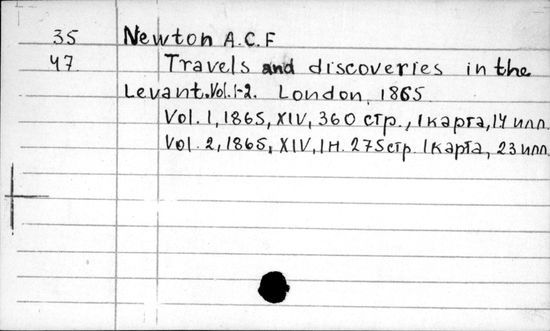 35 Newton A.C.F
47 Travels and discoveries in the
Levant. Vol. 1-2. London, 1865.
Vol. 1, 1865, XIV, 360 стр., 1 карта, 14 илл.
Vol. 2, 1865, XIV, 1н. 275 стр. 1 карта, 23 илл.